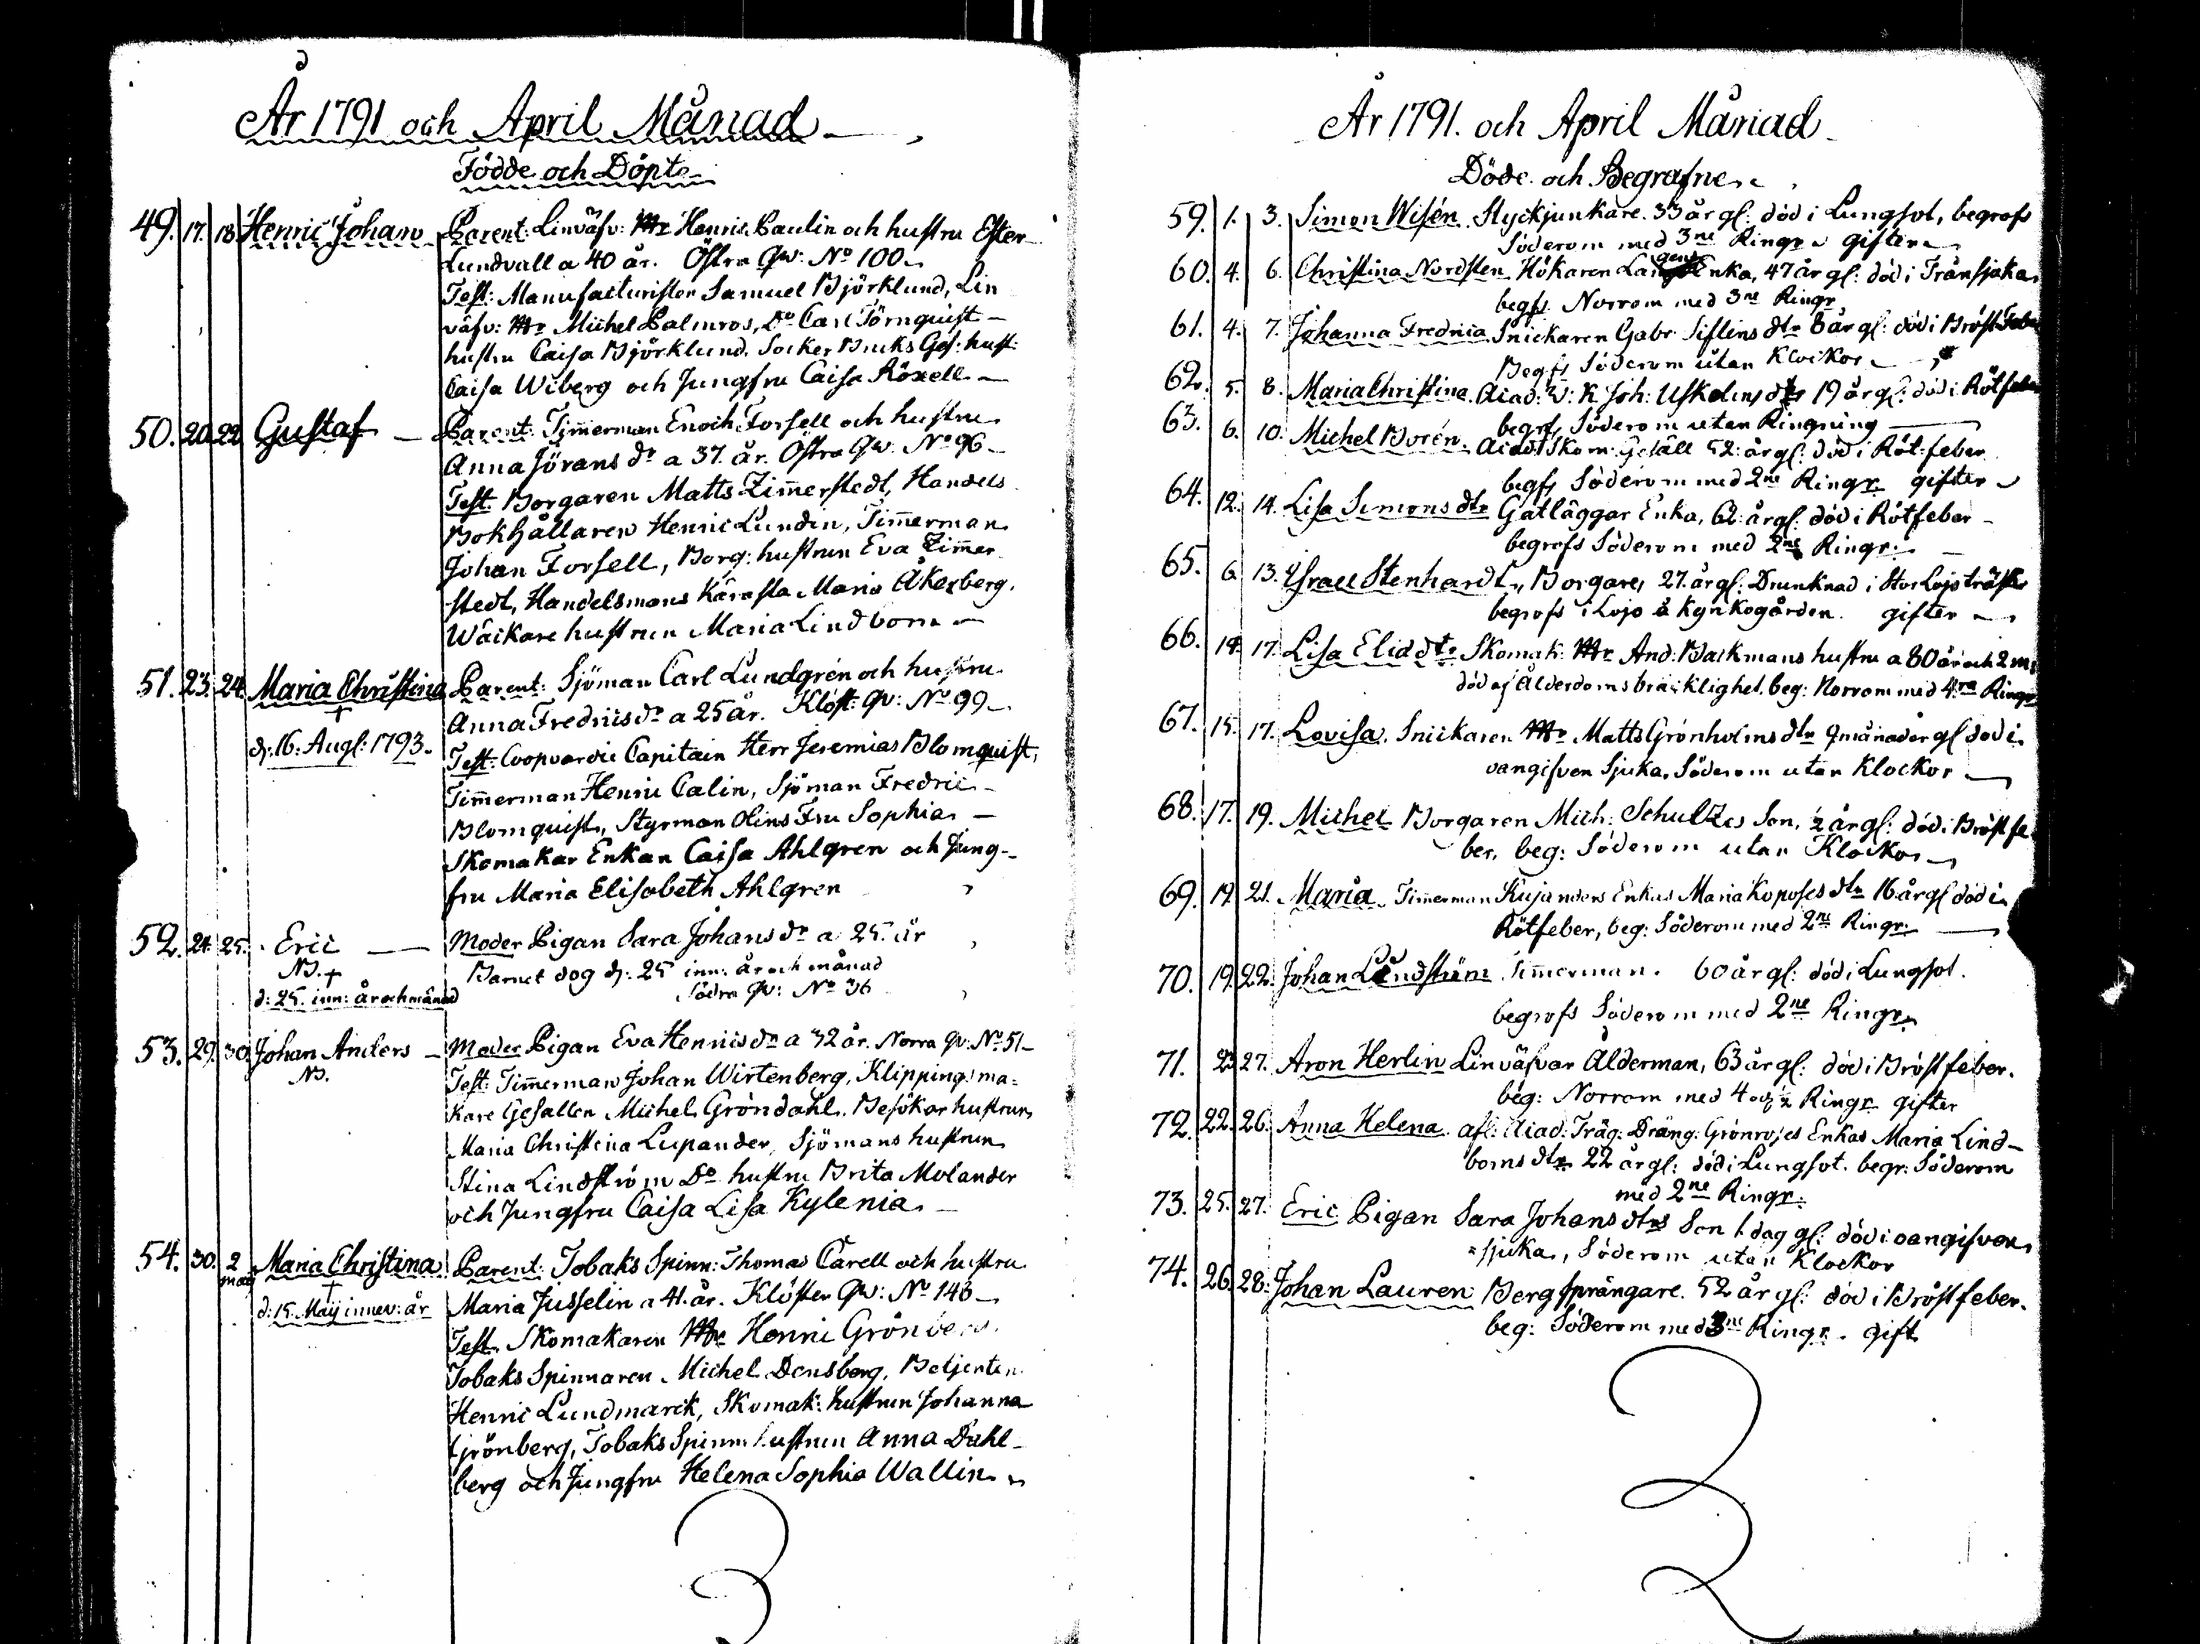 År 1791 och April Månad
Födde och Döpte
49. 17. 18. Henric Johan Parent: Linväfv: Mr Henric Paulin och hustru Ester
Lundvall a 40 år. Östra Qw: No 100.
Test: Manufacturisten Samuel Björklund, Lin
väfv: Mr Michel Palmros, Do Carl Törnquist
hustru Caisa Björklund. Socker Bruks Ges: hust:
Caisa Wiberg och Jungfru Caisa Röxell
50. 20. 22. Gustaf Parent: Timmerman Enoch Forsell och hustru
Anna Jörans dr a 37. år. Östra Qw: No 96
Test: Borgaren Matts Zimmerstedt, Handels
Bokhållaren Henric Lundin, Timmerman
Johan Forsell, Borg: hustrun Eva Zimmer
stedt, Handelsmans Kärasta Maria Åkerberg.
Wäckare hustrun Maria Lindbom
51. 23. 24. Maria Christina Parent: Sjöman Carl Lundgrén och hustru
Anna Fredricsdr a 25 år. Klöst: Qv: No 99
d: 16: Aug: 1793. Test: Coopvardie Capitain Herr Jeremias Blomquist,
Timmerman Henric Calin, Sjöman Fredric
Blomquist, Styrman Olins Fru Sophia
Skomakar Enkan Caisa Ahlgren och Jung-
fru Maria Elisabeth Ahlgren
52. 24. 25. Eric Moder Pigan Sara Johans dr a 25. år
NB. † Barnet dog d: 25 inn: år och månad
d: 25. inn: år och månad Södra Qv: No 36
53. 29. 30. Johan Anders Moder Pigan Eva Henricsdr a 32 år. Norra Qv: No 51
NB. Test: Timmerman Johan Wirtenberg, Klipping: ma=
kare Gesällen Michel Gröndahl. Besökar hustrun
Maria Christina Lupander, Sjömans hustrun
Stina Lindström Do hustru Brita Molander
och Jungfru Caisa Lisa Kylenia
54. 30. 2 maij Maria Christina Parent: Tobaks Spinn: Thomas Carell och hustru
† d: 15. Maij innev: år Maria Jusselin a 41. år. Klöster Qv: No 146
Test. Skomakaren Mr Henric Grönberg.
Tobaks Spinnaren Michel Densberg, Betjenten
Henric Lundmarck, Skomak: hustrun Johanna
Grönberg, Tobaks Spinn: hustrun Anna Dahl-
berg och Jungfru Helena Sophia Wallin
År 1791. och April Månad
Döde och Begrafne
59. 1. 3. Simon Wisén. Styckjunkare. 33 år gl: död i Lungsot, begrofs
Söderom med 3ne Ringr gifter
60. 4. 6. Christina Nordsten Hökaren Enka, 47 år gl: död i Trånsjuka
begfs Norrom med 3ne Ringr
61. 4. 7. Johanna Fredrica Snickaren Gabr. dtr 8 år gl: död i Bröst Feber
Begfs Söderom utan Klockor
62. 5. 8. Maria Christina. Acad: W: K Joh: dtr 19 år gl: död i Rötfeber
begrfs Söderom utan Ringning
63. 6. 10. Michel Borén. Skom: Gesäll 52 år gl: död i Röt-feber
begfs Söderom med 2ne Ringr gifter
64. 12. 14. Lisa Simons dtr Gatläggar Enka, 62 år gl: död i Rötfeber
begrofs Söderom med 2ne Ringr.
65. 6. 13. Israel Stenhardt, Borgare, 27. år gl: Drunknad i Stor Lojo träsk
begrofs i Lojo å Kyrkogården. gifter
66. 14. 17. Lisa Eliædtr Skomak: Mr And: Backmans hustru a 80 år och 2 m:
död af Ålderdoms bräcklighet, beg: Norrom med 4ra Ringr
67. 15. 17. Lovisa. Snickaren Mr Matts Grönholms dtr 9 månader gl död i
oangifven Sjuka, Söderom utan Klockor
68. 17. 19. Michel Borgaren Mich: Schultzes Son, ½ år gl: död i Bröstfe
ber, beg: Söderom utan Klockor
69. 19. 21. Maria Timmerman Kujanders Enkas Maria Koposes dtr 16 år gl död i
Rötfeber, beg: Söderom med 2ne Ringr.
70. 19. 22. Johan Lundström Timmerman. 60 år gl: död i Lungsot.
begrofs Söderom med 2ne Ringr.
71. 23. 27. Aron Herlin Linväfvar Ålderman, 63 år gl: död i Bröstfeber.
beg: Norrom med 4 och ½ Ringr gifter
72. 22. 26. Anna Helena afl: Acad: Träg: Dräng: Enkas Maria Lind-
boms dtr 22 år gl: död i Lungsot. begr: Söderom
med 2ne Ringr.
73. 25. 27. Eric Pigan Sara Johans dtrs Son 1 dag gl: död i oangifven
sjuka, Söderom utan Klockor
74. 26. 28. Johan Lauren Bergsprängare. 52 år gl: död i Bröstfeber.
beg: Söderom med 3ne Ringr. gift